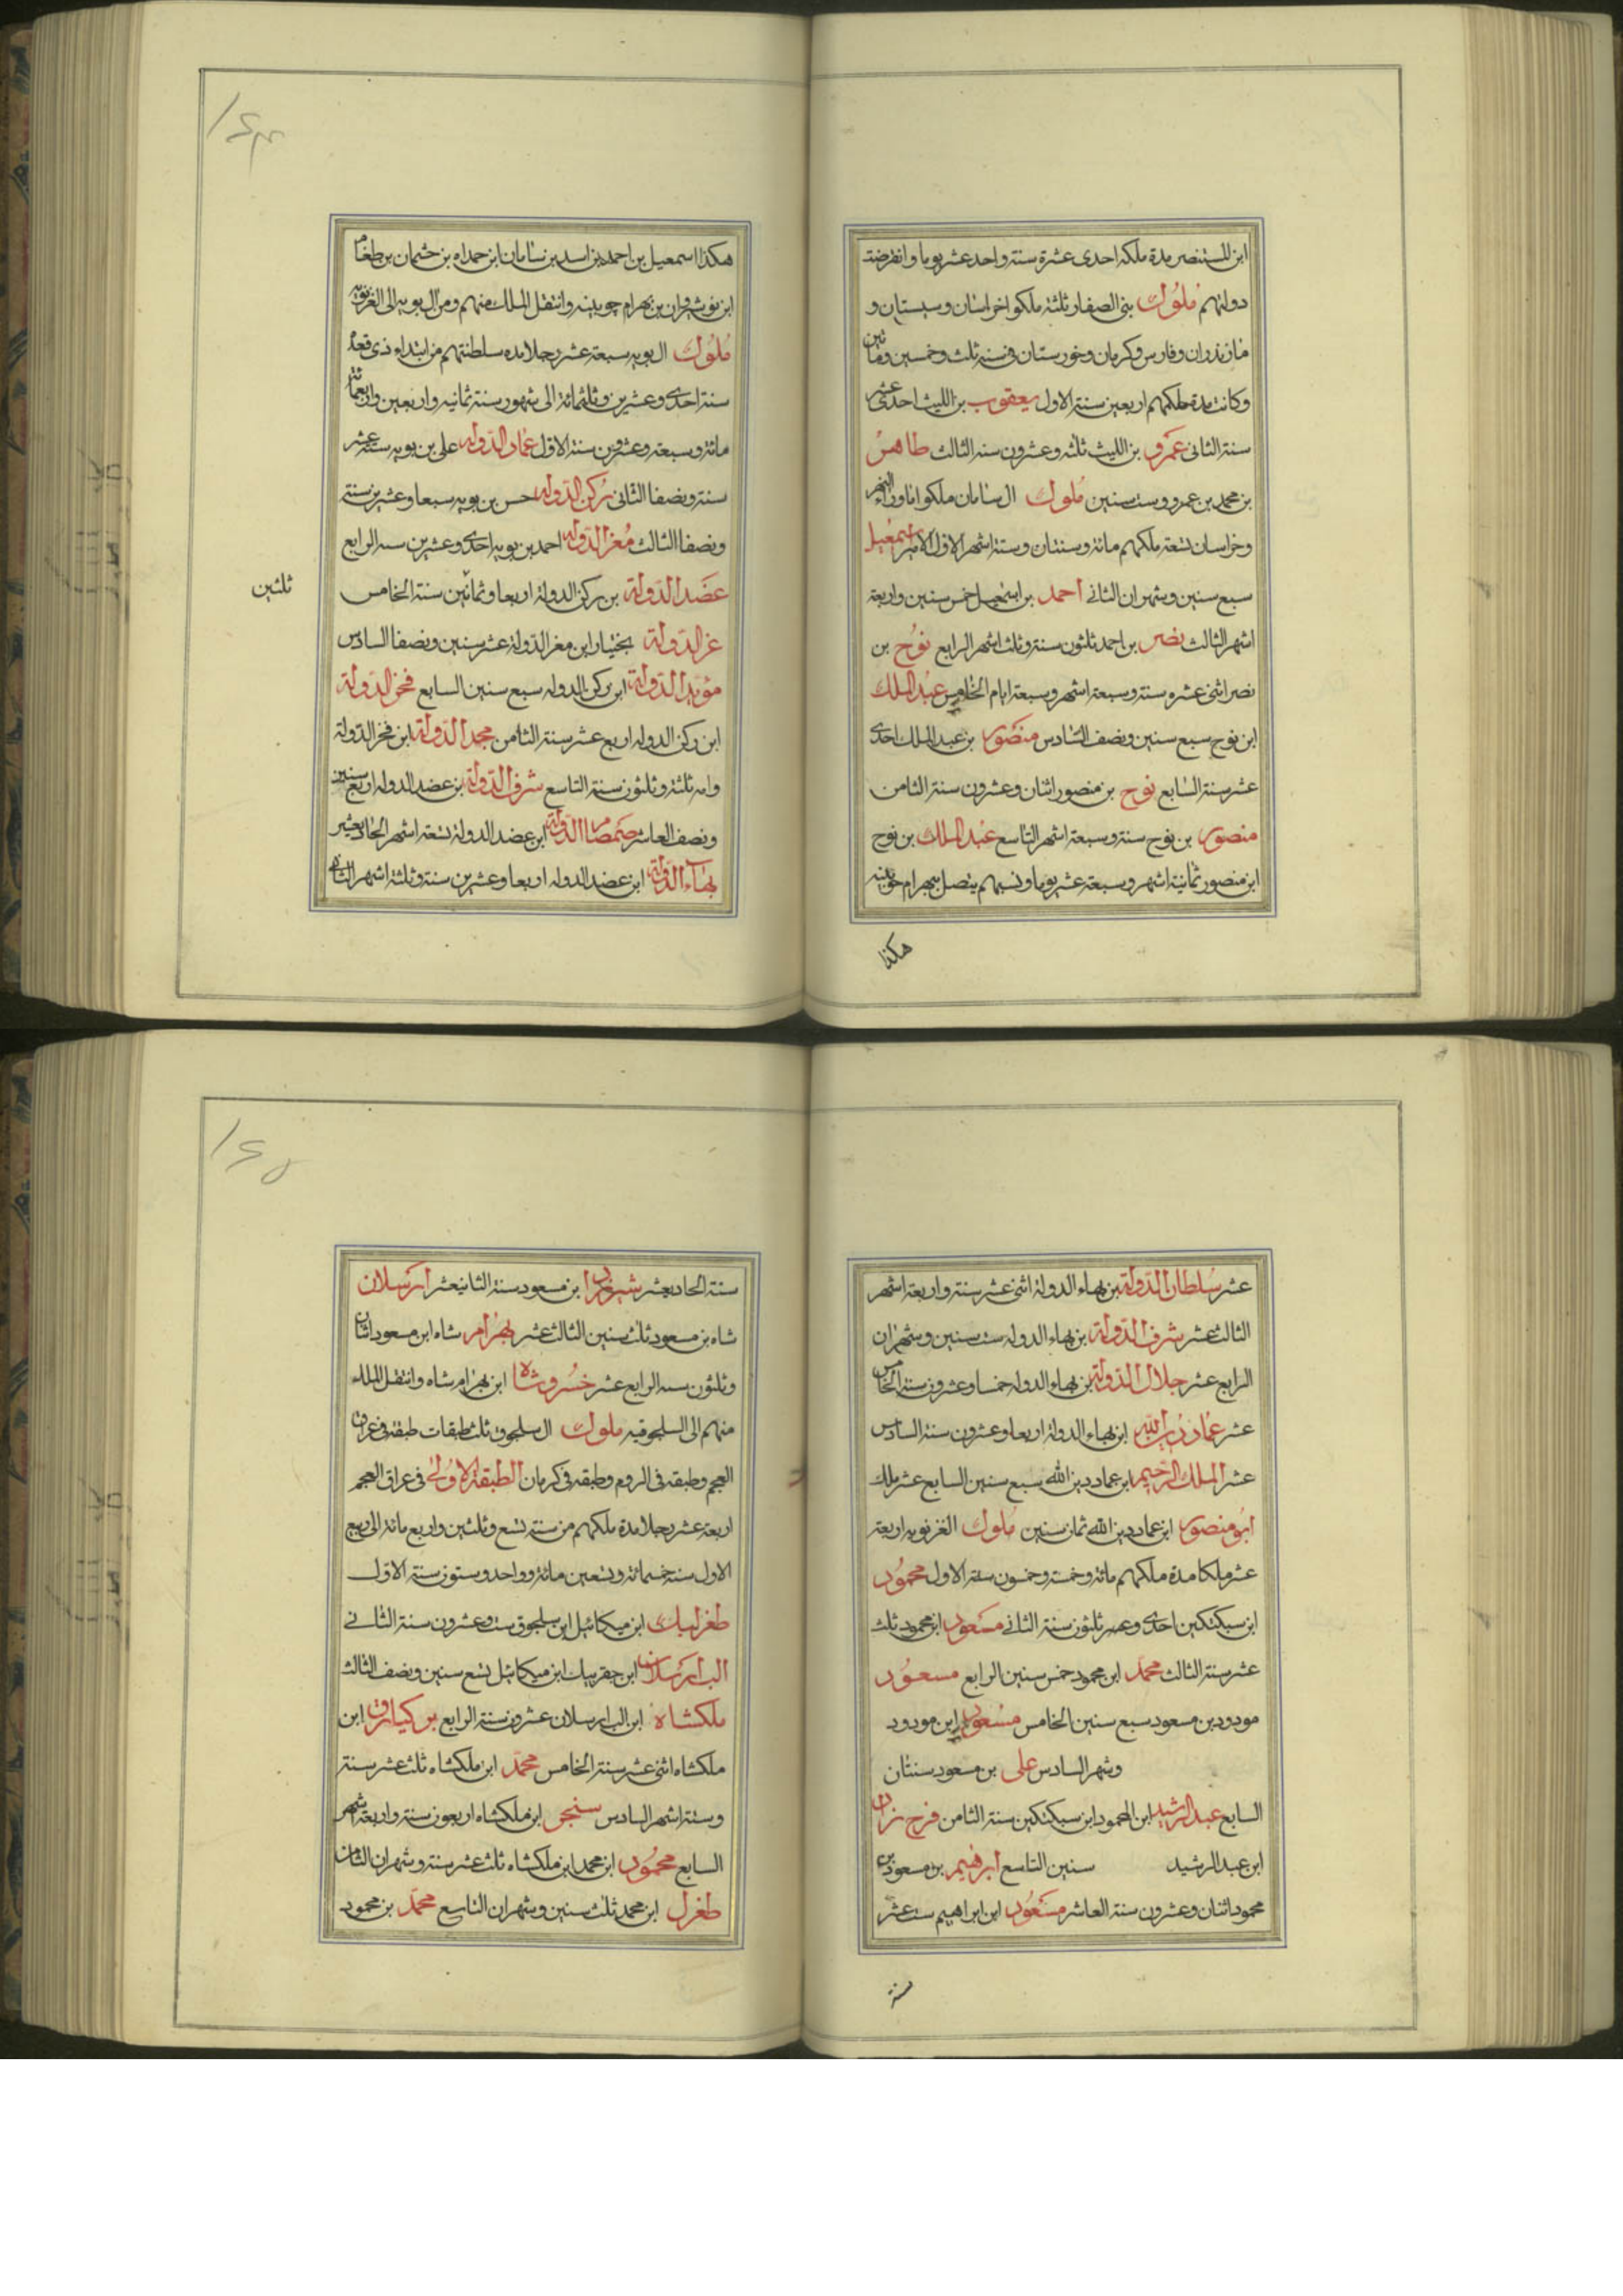 ابن المستنصر مدة ملكه احدى عشرة سنة واحد عشر يوما وانقرضت
دولتهم ملوك بنى الصفار ثلثة ملكوا خراسان وسيستان و
مازندران وفارس وكرمان وخورستان فى سنة ثلث وخمسين ومأتين
وكانت مدة ملكهم اربعين سنة الاول يعقوب بن الليث احدى عشر
سنة الثانى عمرو بن الليث ثلثه وعشرون سنه الثالث طاهر
بن محمد بن عمرو وست سنين ملوك ال سامان ملكوا ماوراء النهر
وخراسان تسعة ملكهم مائة وسنتان وستة اشهر الاول الامير اسمعيل
سبع سنين وشهران الثانى احمد بن اسمعيل خمس سنين واربعة
اشهر الثالث نصر بن احمد ثلثون سنة وثلث اشهر الرابع نوح بن
نصر اثنى عشره سنة وسبعة اشهر وسبعة ايام الخامس عبد الملك
ابن نوح سبع سنين ونصف السادس منصور بن عبد الملك احدى
عشر سنة السابع نوح بن منصور اثنان وعشرون سنة الثامن
منصور بن نوح سنة وسبعة اشهر التاسع عبد الملك بن نوح
ابن منصور ثمانية اشهر وسبعة عشر يوما ونسبهم يتصل ببهرام جوبينه
هكذا
١٤٣
هكذا اسمعيل بن احمد بن اسد بن سامان ابن حمداه بن حثمان بن طغام
ابن نوشروان بن بهرام چوبينه وانتقل الملك منهم ومن ال بويه الى الغزنويه
ملوك ال بويه سبعة عشر رجلا مده سلطنتهم من ابتداء ذى قعده
سنة احدى وعشرين وثلثمائة الى شهور سنة ثمانيه واربعين واربعمائة
مائة وسبعة وعشرين سنة الاول عماد الدوله على بن بويه ستة عشر
سنة ونصفا الثانى ركن الدوله حسن بن بويه سبعا وعشرين سنة
ونصفا الثالث معز الدوله احمد بن بويه احدى وعشرين سنه الرابع
عضد الدولة بن ركن الدولة اربعا وثمانين سنة الخامس
ثلثين
عز الدولة بختيار ابن معز الدولة عشر سنين ونصفا السادس
مؤيد الدولة ابن ركن الدوله سبع سنين السابع فخر الدولة
ابن ركن الدوله اربع عشر سنة الثامن مجد الدولة ابن فخر الدولة
وامه ثلثة وثلثون سنة التاسع شرف الدولة بن عضد الدوله اربع سنين
ونصف العاشر صمصام الدولة ابن عضد الدولة تسعة اشهر الحاديعشر
بهاء الدولة ابن عضد الدوله اربعا وعشرين سنة وثلثة اشهر الثانى
عشر سلطان الدولة بن بهاء الدولة اثنى عشر سنة واربعة اشهر
الثالث عشر شرف الدولة بن بهاء الدوله ست سنين وشهران
الرابع عشر جلال الدولة بن بهاء الدوله خمسا وعشرون سنة الخامس
عشر عماد دين الله ابن بهاء الدولة اربعا وعشرون سنة السادس
عشر الملك الرحيم ابن عماد دين الله سبع سنين السابع عشر ملك
ابو منصور ابن عماد دين الله ثمان سنين ملوك الغزنويه اربعة
عشر ملكا مدة ملكهم مائة وخمسة وخمسون سنة الاول محمود
ابن سبكتكين احدى وعشر ثلثون سنة الثانى مسعود ابن محمود ثلث
عشر سنة الثالث محمد ابن محمود خمس سنين الرابع مسعود
مودود بن مسعود سبع سنين الخامس مسعود ابن مودود
وشهر السادس على بن مسعود سنتان
السابع عبد الرشيد ابن المحمود ابن سبكتكين سنة الثامن فرخ زاد
ابن عبد الرشيد سنين التاسع ابرهيم بن مسعود بن
محمود اثنان وعشرون سنة العاشر مسعود ابن ابراهيم ست عشر
سنة
١٤٥
سنة الحاديعشر شيرزاد ابن مسعود سنة الثانيعشر ارسلان
شاه بن مسعود ثلث سنين الثالث عشر بهرام شاه ابن مسعود اثنان
وثلثون سنه الرابع عشر خسرو شاه ابن بهرام شاه وانتقل الملك
منهم الى السلجوقيه ملوك ال سلجوق ثلث طبقات طبقة فى عراق
العجم وطبقه فى الروم وطبقه فى كرمان الطبقة الاولى فى عراق العجم
اربعة عشر رجلا مدة ملكهم من سنة تسع وثلثين واربع مائة الى ربيع
الاول سنه خمسمائة وتسعين مائة وواحد وستون سنة الاول
طغرلبك ابن ميكائيل ابن سلجوق ست وعشرون سنة الثانى
الب ارسلان ابن جقربيك ابن ميكائيل تسع سنين ونصف الثالث
ملكشاه ابن الب ارسلان عشرون سنة الرابع بركيارق ابن
ملكشاه اثنى عشر سنة الخامس محمد ابن ملكشاه ثلث عشر سنة
وستة اشهر السادس سنجر ابن ملكشاه اربعون سنة واربعة اشهر
السابع محمود ابن محمد ابن ملكشاه ثلث عشر سنة وشهران الثامن
طغرل ابن محمد ثلث سنين وشهران التاسع محمد بن محمود